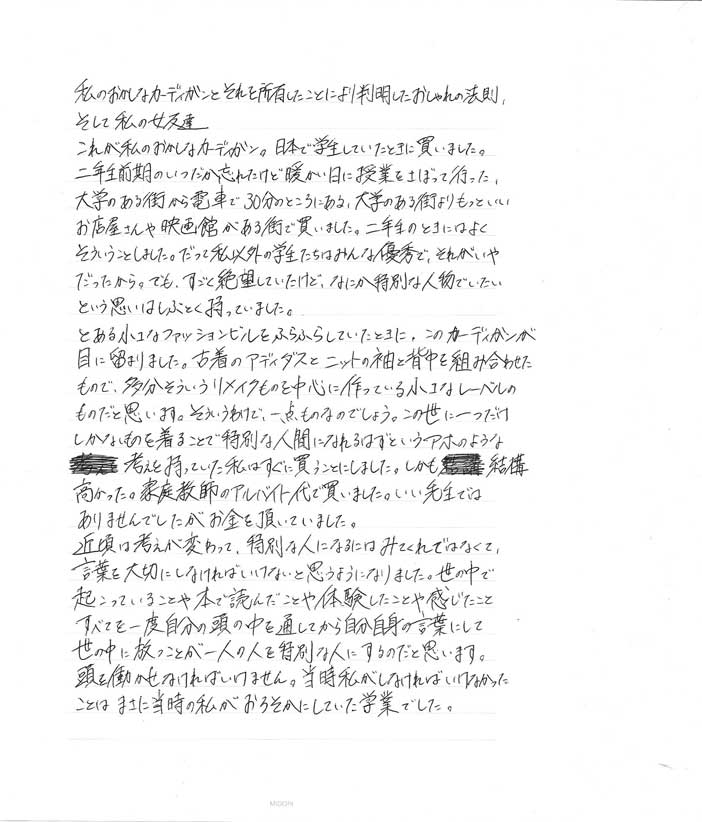 私のおかしなカーディガンとそれを所有したことにより判明したおしゃれの法則,
そして私の女友達
これが私のおかしなカーディガン。日本で学生していたときに買いました。
二年生前期のいつだか忘れたけど暖かい日に授業をさぼって行った,
大学のある街から電車で30分のところにある,大学のある街よりもっといい
お店屋さんや映画館がある街で買いました。二年生のときにはよく
そういうことしました。だって私以外の学生たちはみんな優秀で、それがいや
だったから。でも、すごく絶望していたけど、なにか特別な人物でいたい
という思いはしぶとく持っていました。
とある小さなファッションビルをふらふらしていたときに、このカーディガンが
目に留まりました。古着のアディダスとニットの袖と背中を組み合わせた
もので、多分そういうリメイクものを中心に作っている小さなレーベルの
ものだと思います。そういうわけで、一点ものなのでしょう。この世に一つだけ
しかないものを着ることで特別な人間になれるはずというアホのような
考えを持っていた私はすぐに買うことにしました。しかも 結構
高かった。家庭教師のアルバイト代で買いました。いい先生では
ありませんでしたがお金を頂いていました。
近頃は考えが変わって、特別な人になるにはみてくれではなくて、
言葉を大切にしなければいけないと思うようになりました。世の中で
起こっていることや本で読んだことや体験したことや感じたこと
すべてを一度自分の頭の中を通してから自分自身の言葉にして
世の中に放つことが一人の人を特別な人にするのだと思います。
頭を働かせなければいけません。当時私がしなければいけなかった
ことはまさに当時の私がおろそかにしていた学業でした。
MIDORI